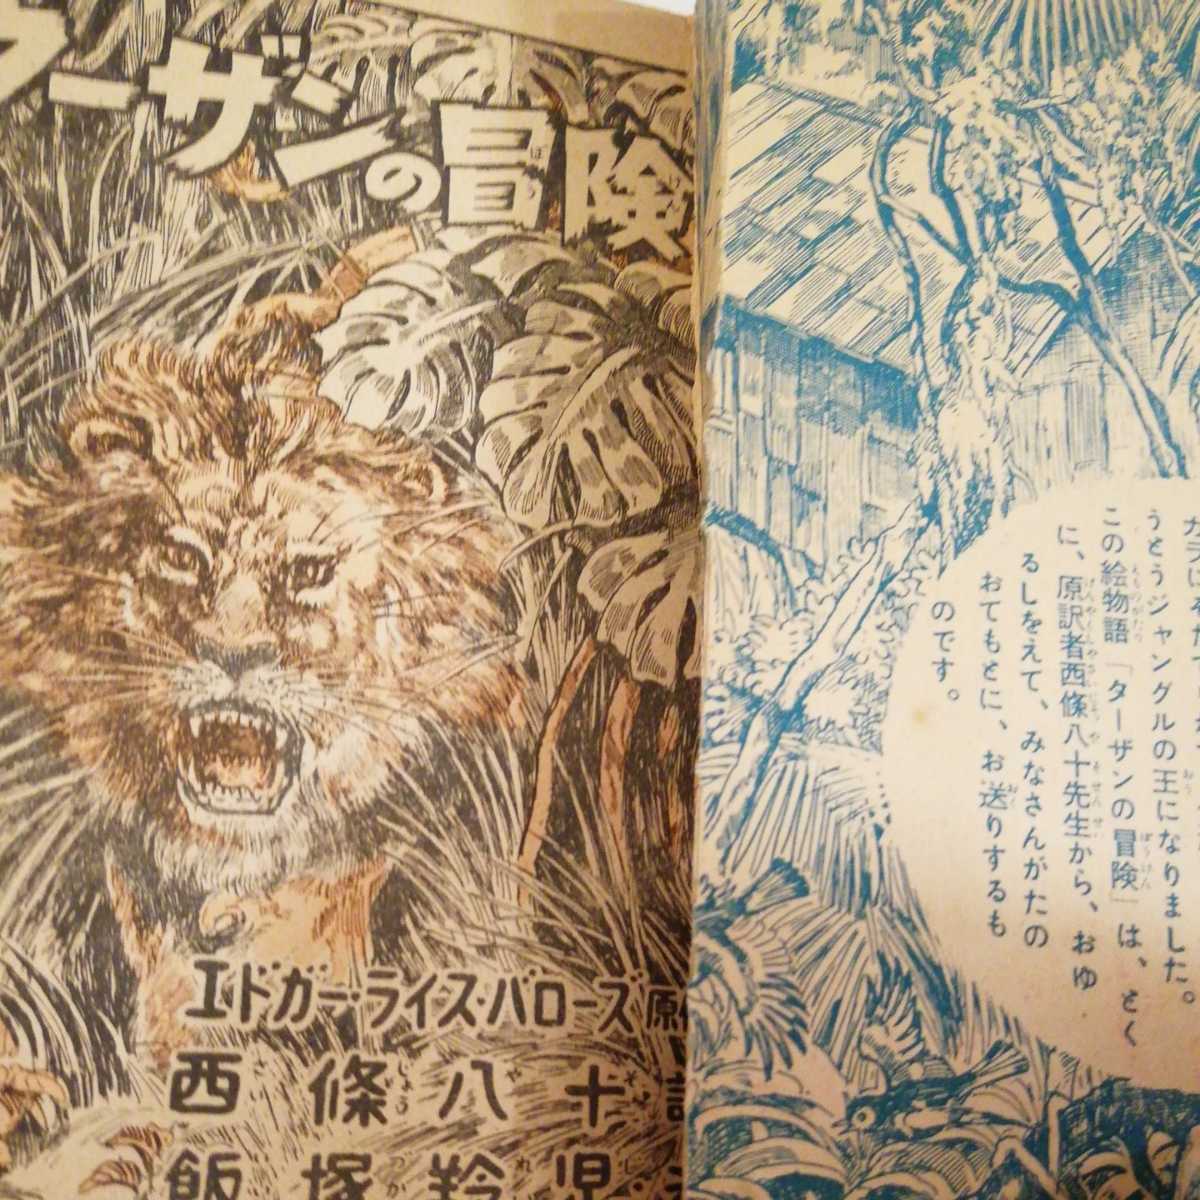 ーザンの冒険
エドガー・ライス・バローズ原
西條八十
飯塚羚児
うとうジャングルの王になりました。
この絵物語「ターザンの冒険」は、とく
に、原訳者西條八十先生から、おゆ
るしをえて、みなさんがたの
おてもとに、お送りするも
のです。